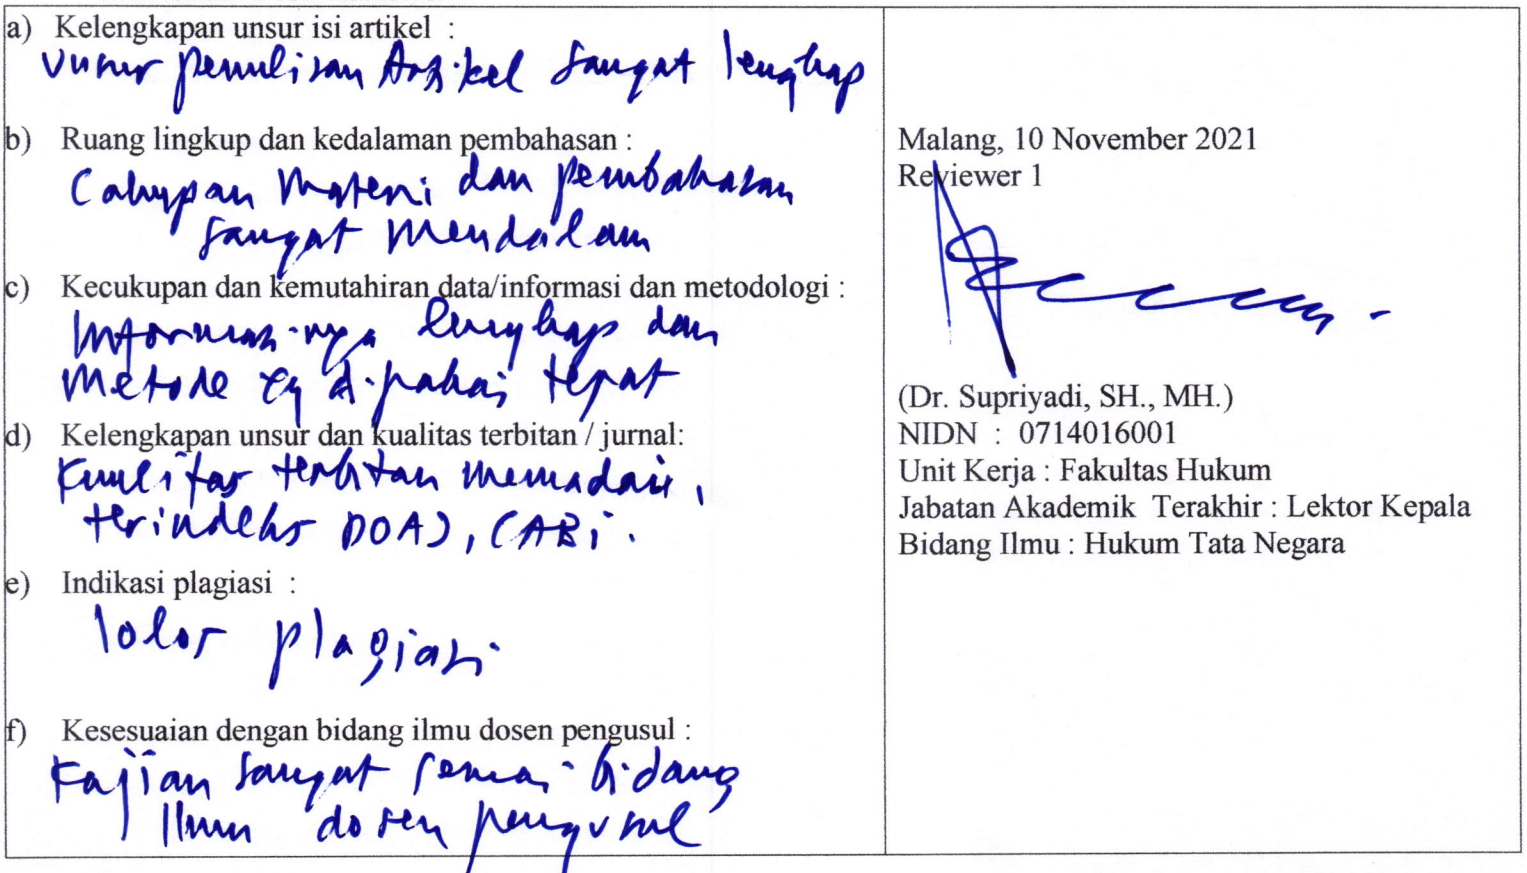 a) Kelengkapan unsur isi artikel :
Unsur penulisan Artikel sangat lengkap
b) Ruang lingkup dan kedalaman pembahasan :
Cakupan Materi dan pembahasan
sangat mendalam
c) Kecukupan dan kemutahiran data/informasi dan metodologi :
Informasinya lengkap dan
Metode yg dipakai tepat
d) Kelengkapan unsur dan kualitas terbitan / jurnal:
Kualitas terbitan memadai,
terindeks DOAJ, CABi.
e) Indikasi plagiasi :
lolos plagiasi
f) Kesesuaian dengan bidang ilmu dosen pengusul :
Kajian sangat sesuai bidang
Ilmu dosen pengusul
Malang, 10 November 2021
Reviewer 1
(Dr. Supriyadi, SH., MH.)
NIDN : 0714016001
Unit Kerja : Fakultas Hukum
Jabatan Akademik Terakhir : Lektor Kepala
Bidang Ilmu : Hukum Tata Negara